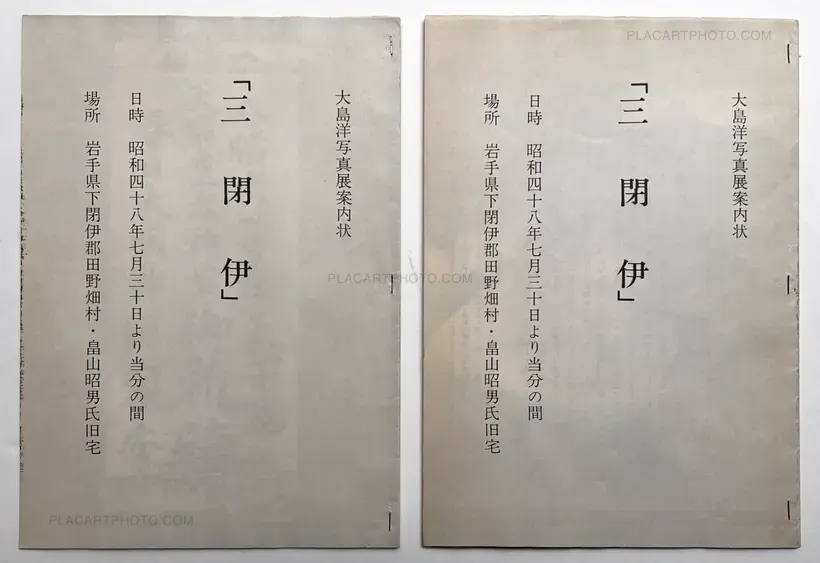 大島洋写真展案内状
「三閉伊」
日時　昭和四十八年七月三十日より当分の間
場所　岩手県下閉伊郡田野畑村・畠山昭男氏旧宅
大島洋写真展案内状
「三閉伊」
日時　昭和四十八年七月三十日より当分の間
場所　岩手県下閉伊郡田野畑村・畠山昭男氏旧宅
PLACARTPHOTO.COM
PLACARTPHOTO.COM
PLACARTPHOTO.COM